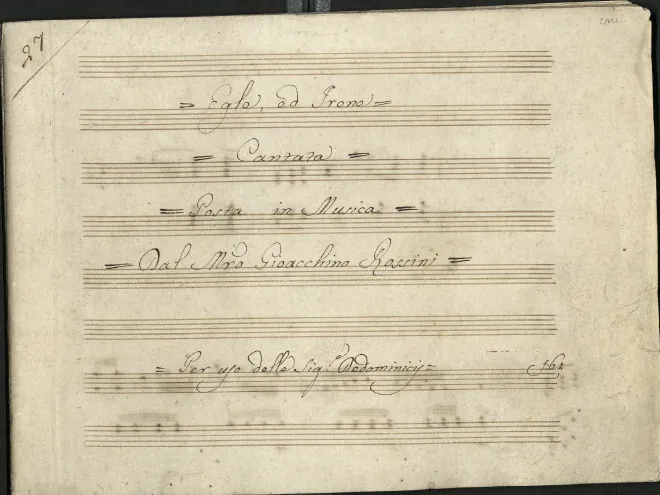 27
= Egle, ed Irene =
= Cantata =
= Posta in Musica =
= Dal Mro Gioacchino Rossini =
= Per uso delle Sige Dedominicis =